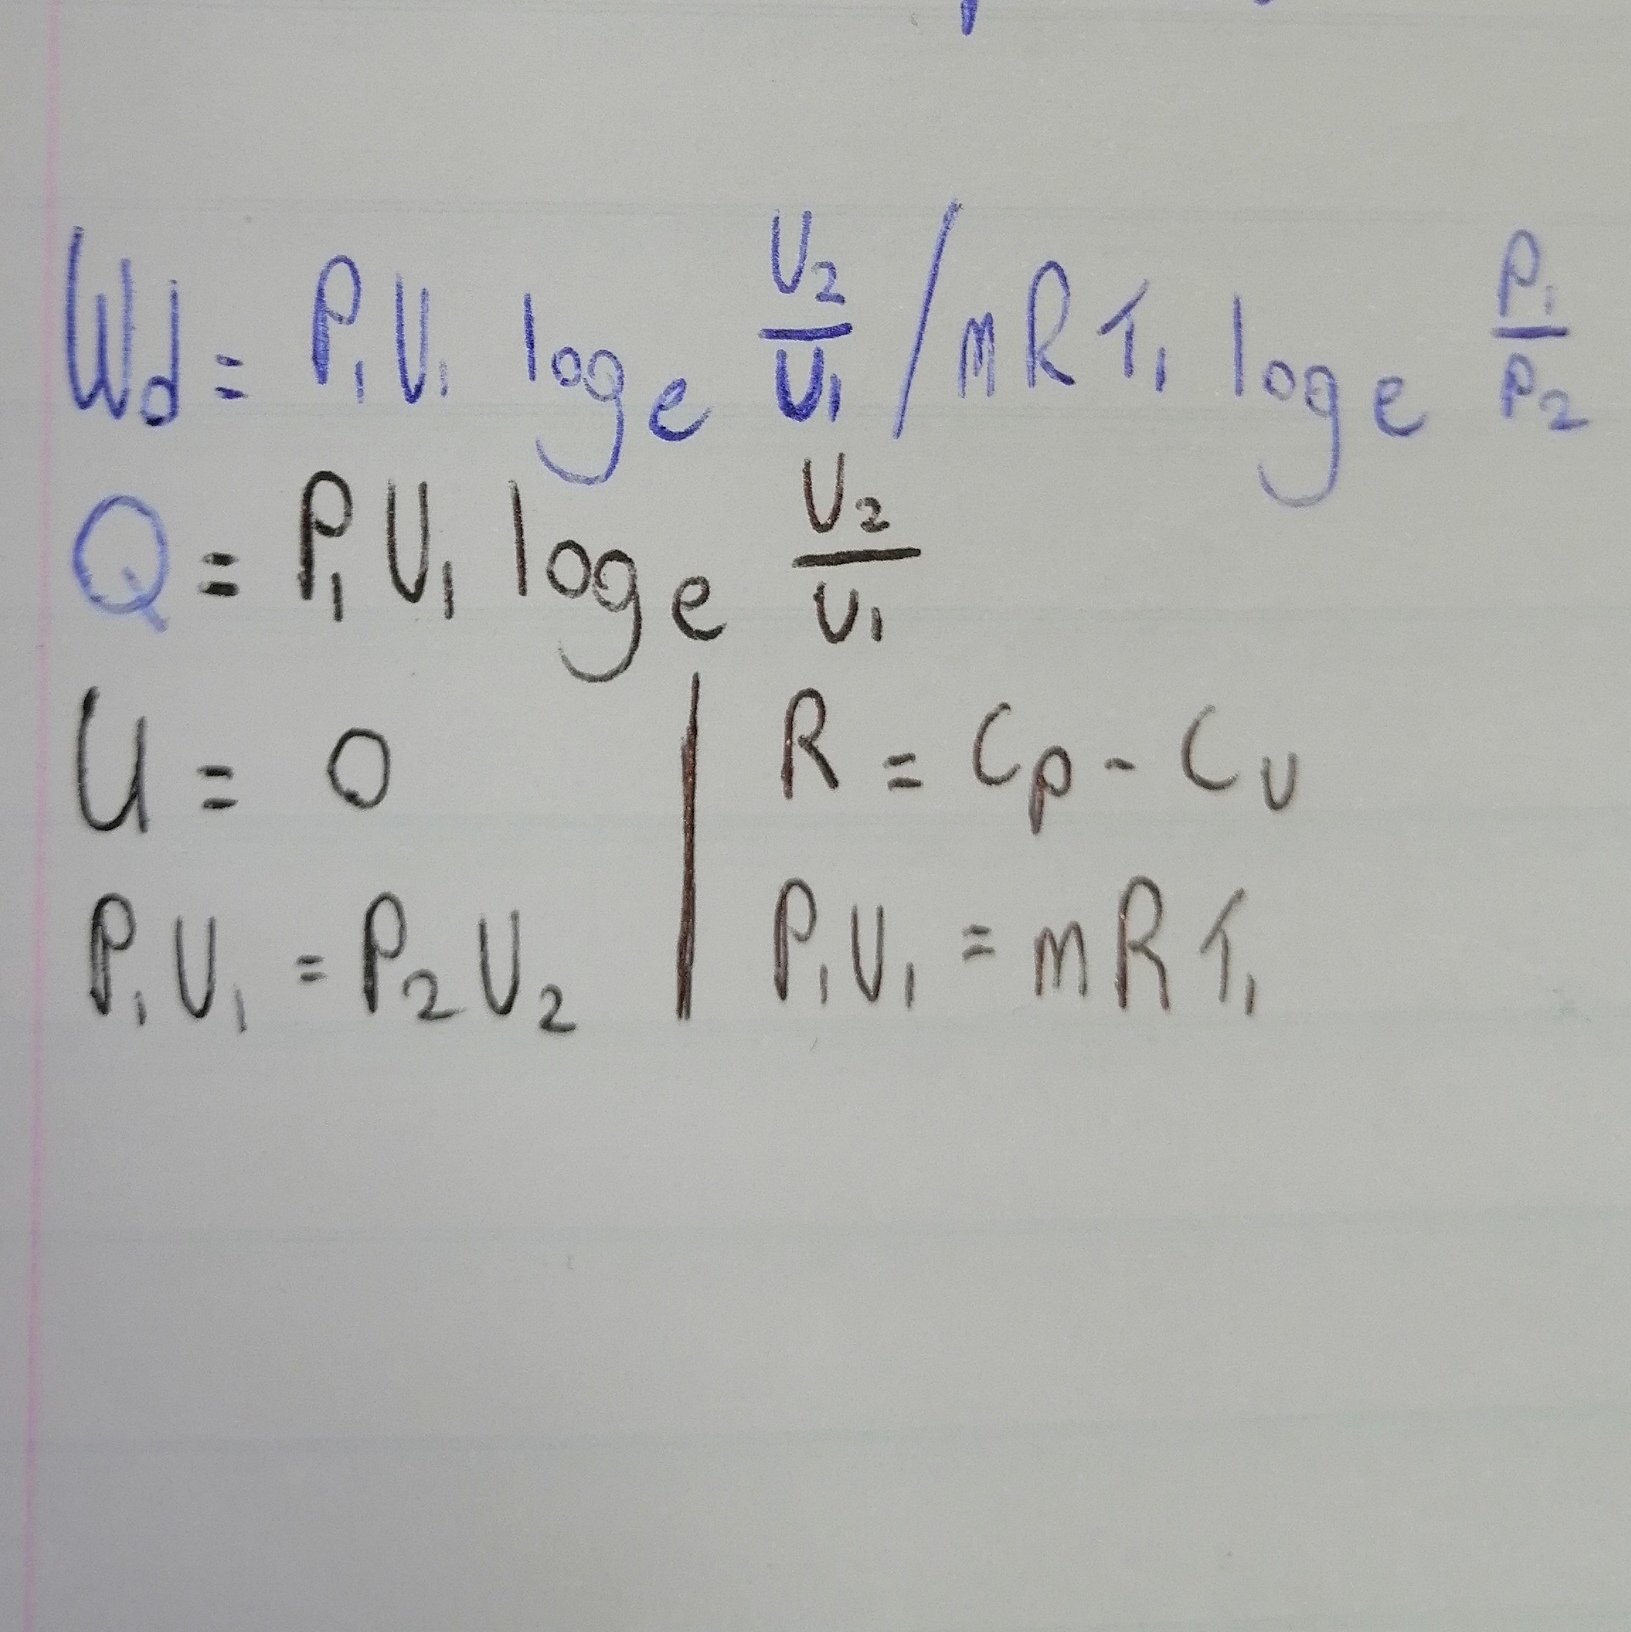 Wd = P₁V₁ logₑ V₂/V₁ / mRT₁ logₑ P₁/P₂
Q = P₁V₁ logₑ V₂/V₁
U = 0 | R = Cp - Cv
P₁V₁ = P₂V₂ | P₁V₁ = mRT₁